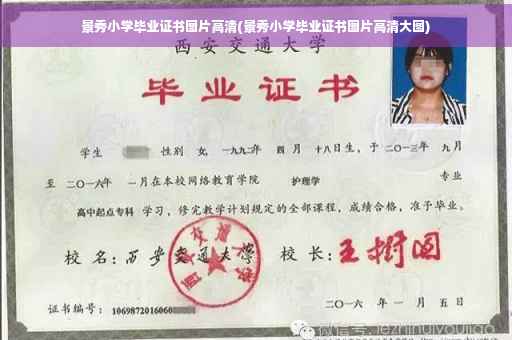 景秀小学毕业证书图片高清(景秀小学毕业证书图片高清大图)
西安交通大学
毕业证书
学生 性别 女, 一九九二年 四 月 十八日生, 于 二〇一三年 九 月
至 二〇一六年 一月在本校网络教育学院 护理学 专业
高中起点专科 学习, 修完教学计划规定的全部课程, 成绩合格, 准予毕业。
校 名: 西安交通大学 校 长: 王树国
西安交通大学
证书编号: 1069872016060
二〇一六 年 一 月 五 日
微信号: jezhihuiyoujiao